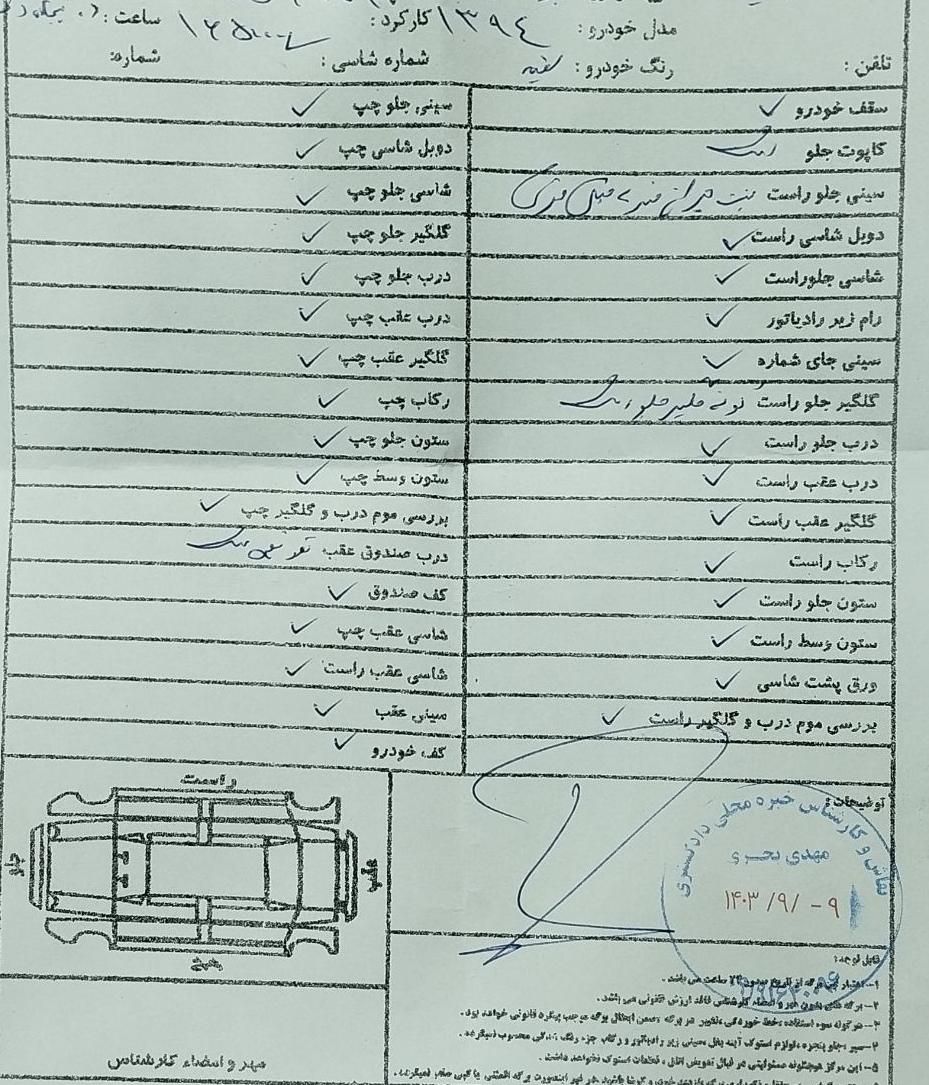 مدل خودرو : ۱۳۹۴ کارکرد : ساعت :
تلفن : رنگ خودرو : سفید شماره شاسی : شماره:
سقف خودرو ✓ سینی جلو چپ ✓
کاپوت جلو رنگ دوبل شاسی چپ ✓
سینی جلو راست شاسی جلو چپ ✓
دوبل شاسی راست ✓ گلگیر جلو چپ ✓
شاسی جلوراست ✓ درب جلو چپ ✓
رام زیر رادیاتور ✓ درب عقب چپ ✓
سینی جای شماره ✓ گلگیر عقب چپ ✓
گلگیر جلو راست رکاب چپ ✓
درب جلو راست ✓ ستون جلو چپ ✓
درب عقب راست ✓ ستون وسط چپ ✓
گلگیر عقب راست ✓ بررسی موم درب و گلگیر چپ ✓
رکاب راست ✓ درب صندوق عقب
ستون جلو راست ✓ کف صندوق ✓
ستون وسط راست ✓ شاسی عقب چپ ✓
ورق پشت شاسی ✓ شاسی عقب راست ✓
بررسی موم درب و گلگیر راست ✓ سینی عقب ✓
کف خودرو ✓
توضیحات:
نقاش و کارشناس خبره محلی دادگستری
مهدی بحری
۱۴۰۳ /۹/ -۹
راست
جلو
عقب
چپ
قابل توجه:
۱- اعتبار این برگه از تاریخ صدور ۲۴ ساعت می باشد .
۲- برگه های بدون مهر و امضاء کارشناس فاقد ارزش قانونی می باشد .
۳- هر گونه سوء استفاده، خط خوردگی، تغییر در برگه ضمن ابطال برگه موجب پیگرد قانونی خواهد بود .
۴- سپر، جلو پنجره، لوازم استوک آینه بغل، سینی زیر رادیاتور و رکاب جزء رنگ زدگی محسوب نمیگردد .
۵- این مرکز هیچگونه مسئولیتی در قبال تعویض اتاق ، قطعات استوک نخواهد داشت .
مهر و امضاء کارشناس